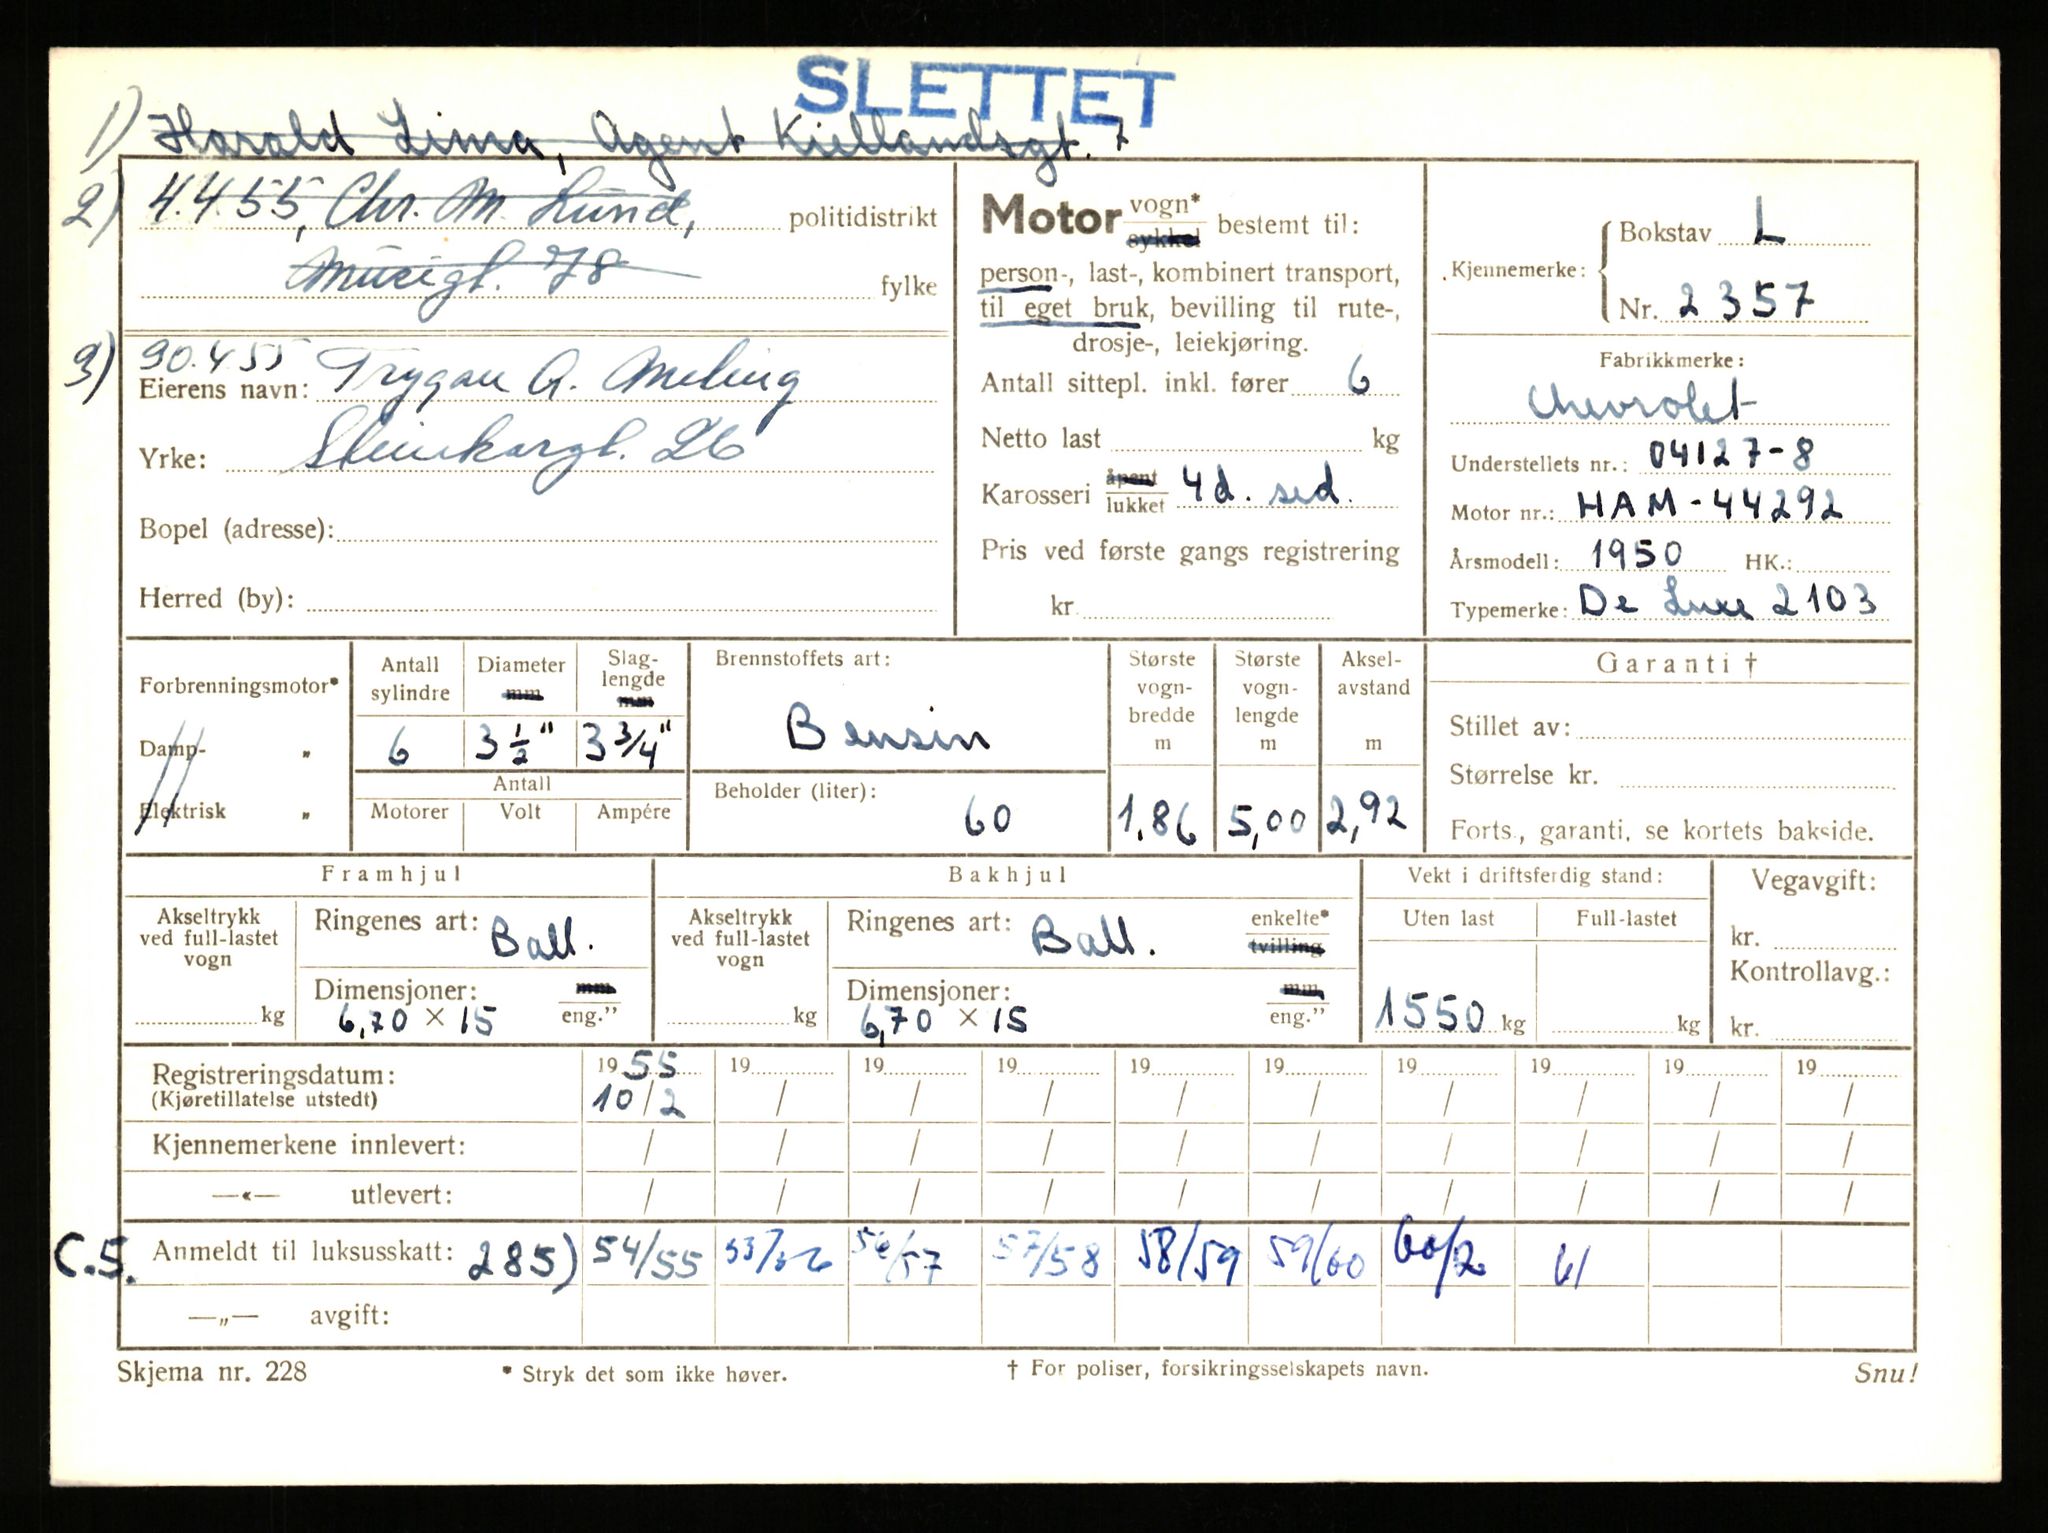 SLETTET
1) Harald Lima, Agent Kiellandsgt. 7
2) 4.4.55, Chr. M. Lund, politidistrikt
78 fylke
3) 30.4.55
Eierens navn: Trygve A. Meling
Yrke: Steinkargt. 26
Bopel (adresse):
Herred (by):
Motor vogn* sykkel bestemt til:
person-, last-, kombinert transport,
til eget bruk, bevilling til rute-,
drosje-, leiekjøring.
Antall sittepl. inkl. fører 6
Netto last kg
Karosseri åpent lukket 4 d. sed.
Pris ved første gangs registrering
kr.
Kjennemerke: Bokstav L
Nr. 2357
Fabrikkmerke:
Chevrolet
Understellets nr.: 04127-8
Motor nr.: HAM-44292
Årsmodell: 1950 HK.:
Typemerke: De Luxe 2103
Forbrenningsmotor*
Damp- "
Elektrisk "
Antall sylindre 6
Diameter mm 3 1/2"
Slag-lengde mm 3 3/4"
Antall
Motorer Volt Ampére
Brennstoffets art:
Bensin
Beholder (liter): 60
Største vogn-bredde m 1,86
Største vogn-lengde m 5,00
Aksel-avstand m 2,92
Garanti †
Stillet av:
Størrelse kr.
Forts., garanti, se kortets bakside.
Framhjul
Akseltrykk ved full-lastet vogn kg
Ringenes art: Ball.
Dimensjoner: mm
6,70 × 15 eng."
Bakhjul
Akseltrykk ved full-lastet vogn kg
Ringenes art: Ball. enkelte* tvilling
Dimensjoner: mm
6,70 × 15 eng."
Vekt i driftsferdig stand:
Uten last Full-lastet
1550 kg kg
Vegavgift:
kr.
Kontrollavg.:
kr.
Registreringsdatum: 1955 19 19 19 19 19 19 19 19 19
(Kjøretillatelse utstedt) 10/2 / / / / / / / / /
Kjennemerkene innlevert: / / / / / / / / / /
—«— utlevert: / / / / / / / / / /
C.5. Anmeldt til luksusskatt: 285) 54/55 56/57 57/58 58/59 59/60 60/2 61
—„— avgift:
Skjema nr. 228 * Stryk det som ikke høver. † For poliser, forsikringsselskapets navn. Snu!